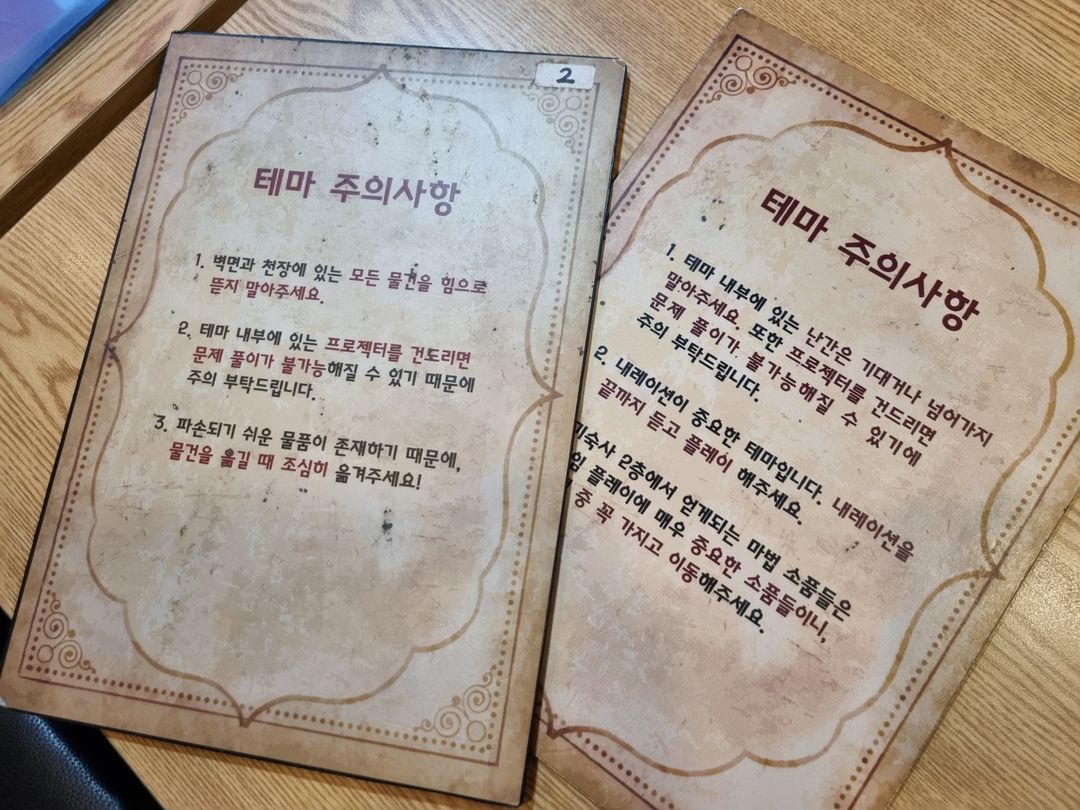 2
테마 주의사항
1. 벽면과 천장에 있는 모든 물건을 힘으로
뜯지 말아주세요.
2. 테마 내부에 있는 프로젝터를 건드리면
문제 풀이가 불가능해질 수 있기 때문에
주의 부탁드립니다.
3. 파손되기 쉬운 물품이 존재하기 때문에,
물건을 옮길 때 조심히 옮겨주세요!
테마 주의사항
1. 테마 내부에 있는 난간은 기대거나 넘어가지
말아주세요. 또한 프로젝터를 건드리면
문제 풀이가 불가능해질 수 있기에
주의 부탁드립니다.
2. 내레이션이 중요한 테마입니다. 내레이션을
끝까지 듣고 플레이 해주세요.
2층에서 얻게되는 마법 소품들은
플레이에 매우 중요한 소품들이니,
중 꼭 가지고 이동해주세요.